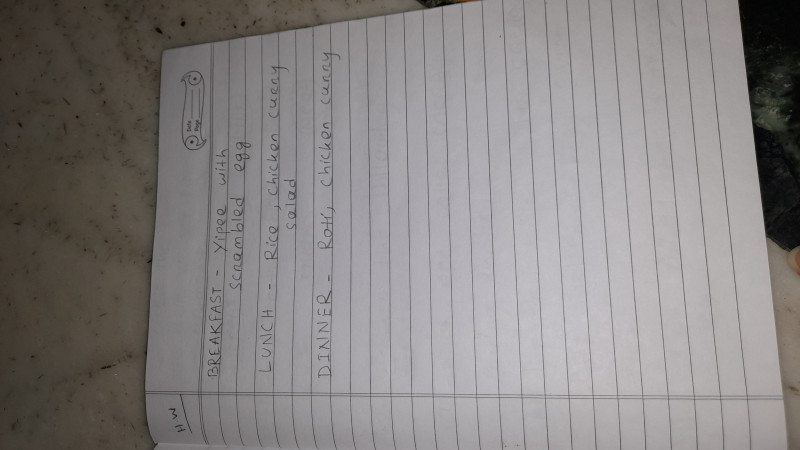 HW
Date
Page
BREAKFAST - Yipee with
scrambled egg
LUNCH - Rice, chicken curry
salad
DINNER - Roti, chicken curry